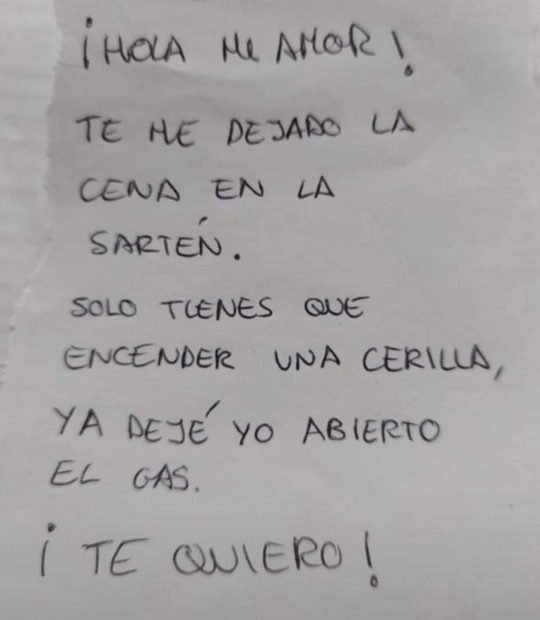 ¡HOLA MI AMOR!
TE HE DEJADO LA
CENA EN LA
SARTÉN.
SOLO TIENES QUE
ENCENDER UNA CERILLA,
YA DEJÉ YO ABIERTO
EL GAS.
¡TE QUIERO!